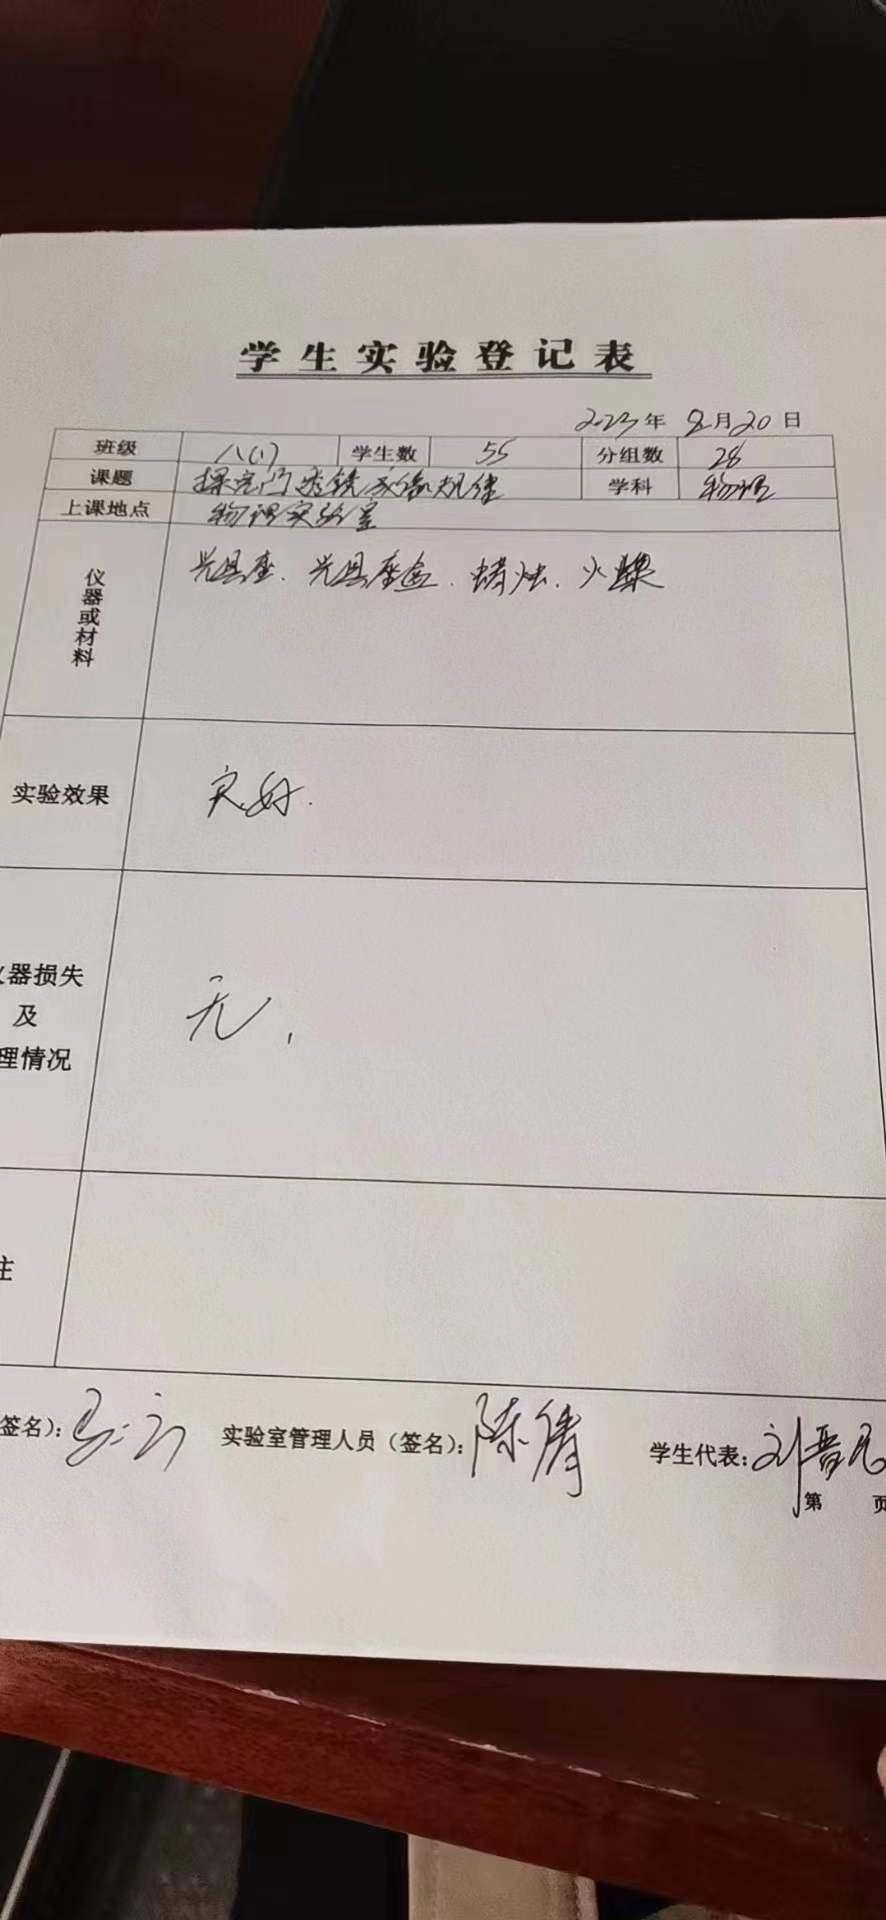 学生实验登记表
2023年 9月20日
班级 八(1) 学生数 55 分组数 28
课题 探究凸透镜成像规律 学科 物理
上课地点 物理实验室
仪器或材料 光具座、光具座盒、蜡烛、火柴
实验效果 良好.
仪器损失
及 无.
理情况
注
签名): 实验室管理人员(签名): 陈倩 学生代表: 刘晋
第 页